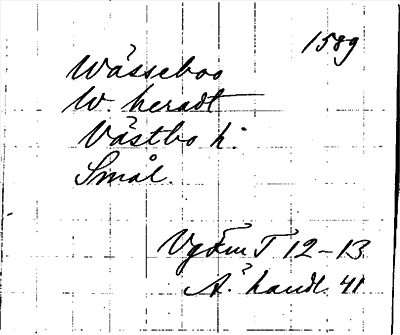 1589
Wässeboo
W. heradt
Västbo h:
Smål.
VgFmT 12-13
A. handl. 41